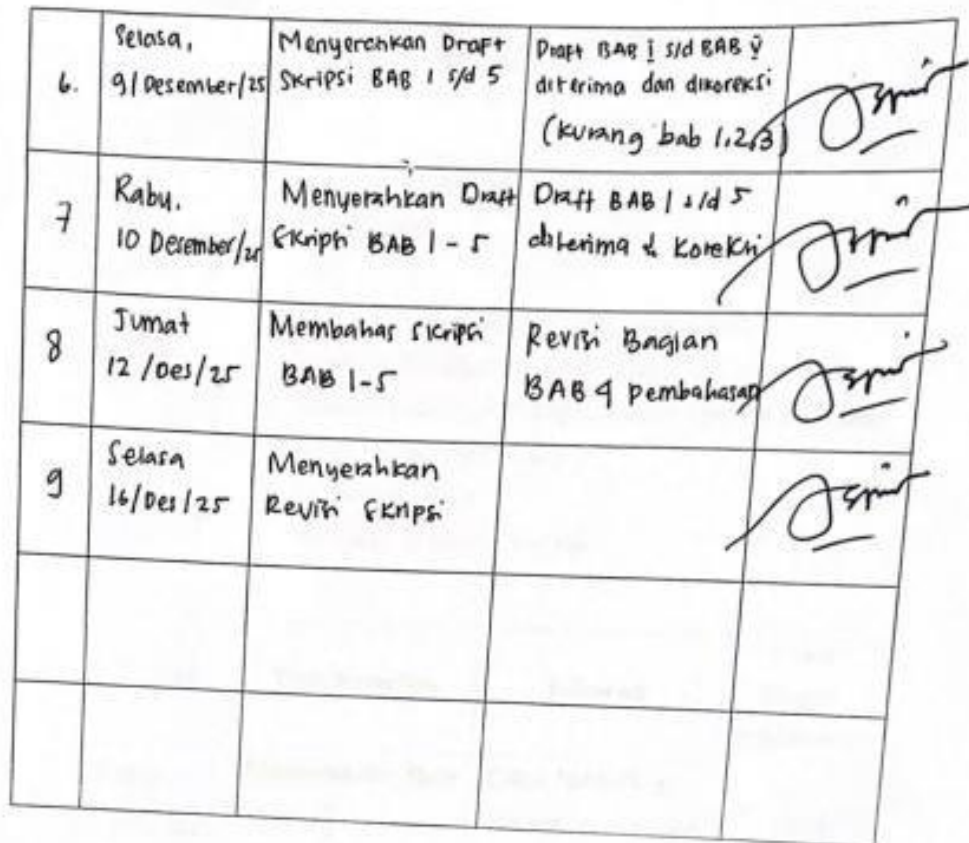 6.
Selasa,
9/Desember/25
Menyerahkan Draft
Skripsi BAB 1 s/d 5
Draft BAB I s/d BAB V
diterima dan dikoreksi
(kurang bab 1,2,3)
7
Rabu,
10 Desember/25
Menyerahkan Draft
Skripsi BAB 1 - 5
Draft BAB 1 s/d 5
diterima & Koreksi
8
Jumat
12/Des/25
Membahas Skripsi
BAB 1-5
Revisi Bagian
BAB 4 pembahasan
9
Selasa
16/Des/25
Menyerahkan
Revisi Skripsi